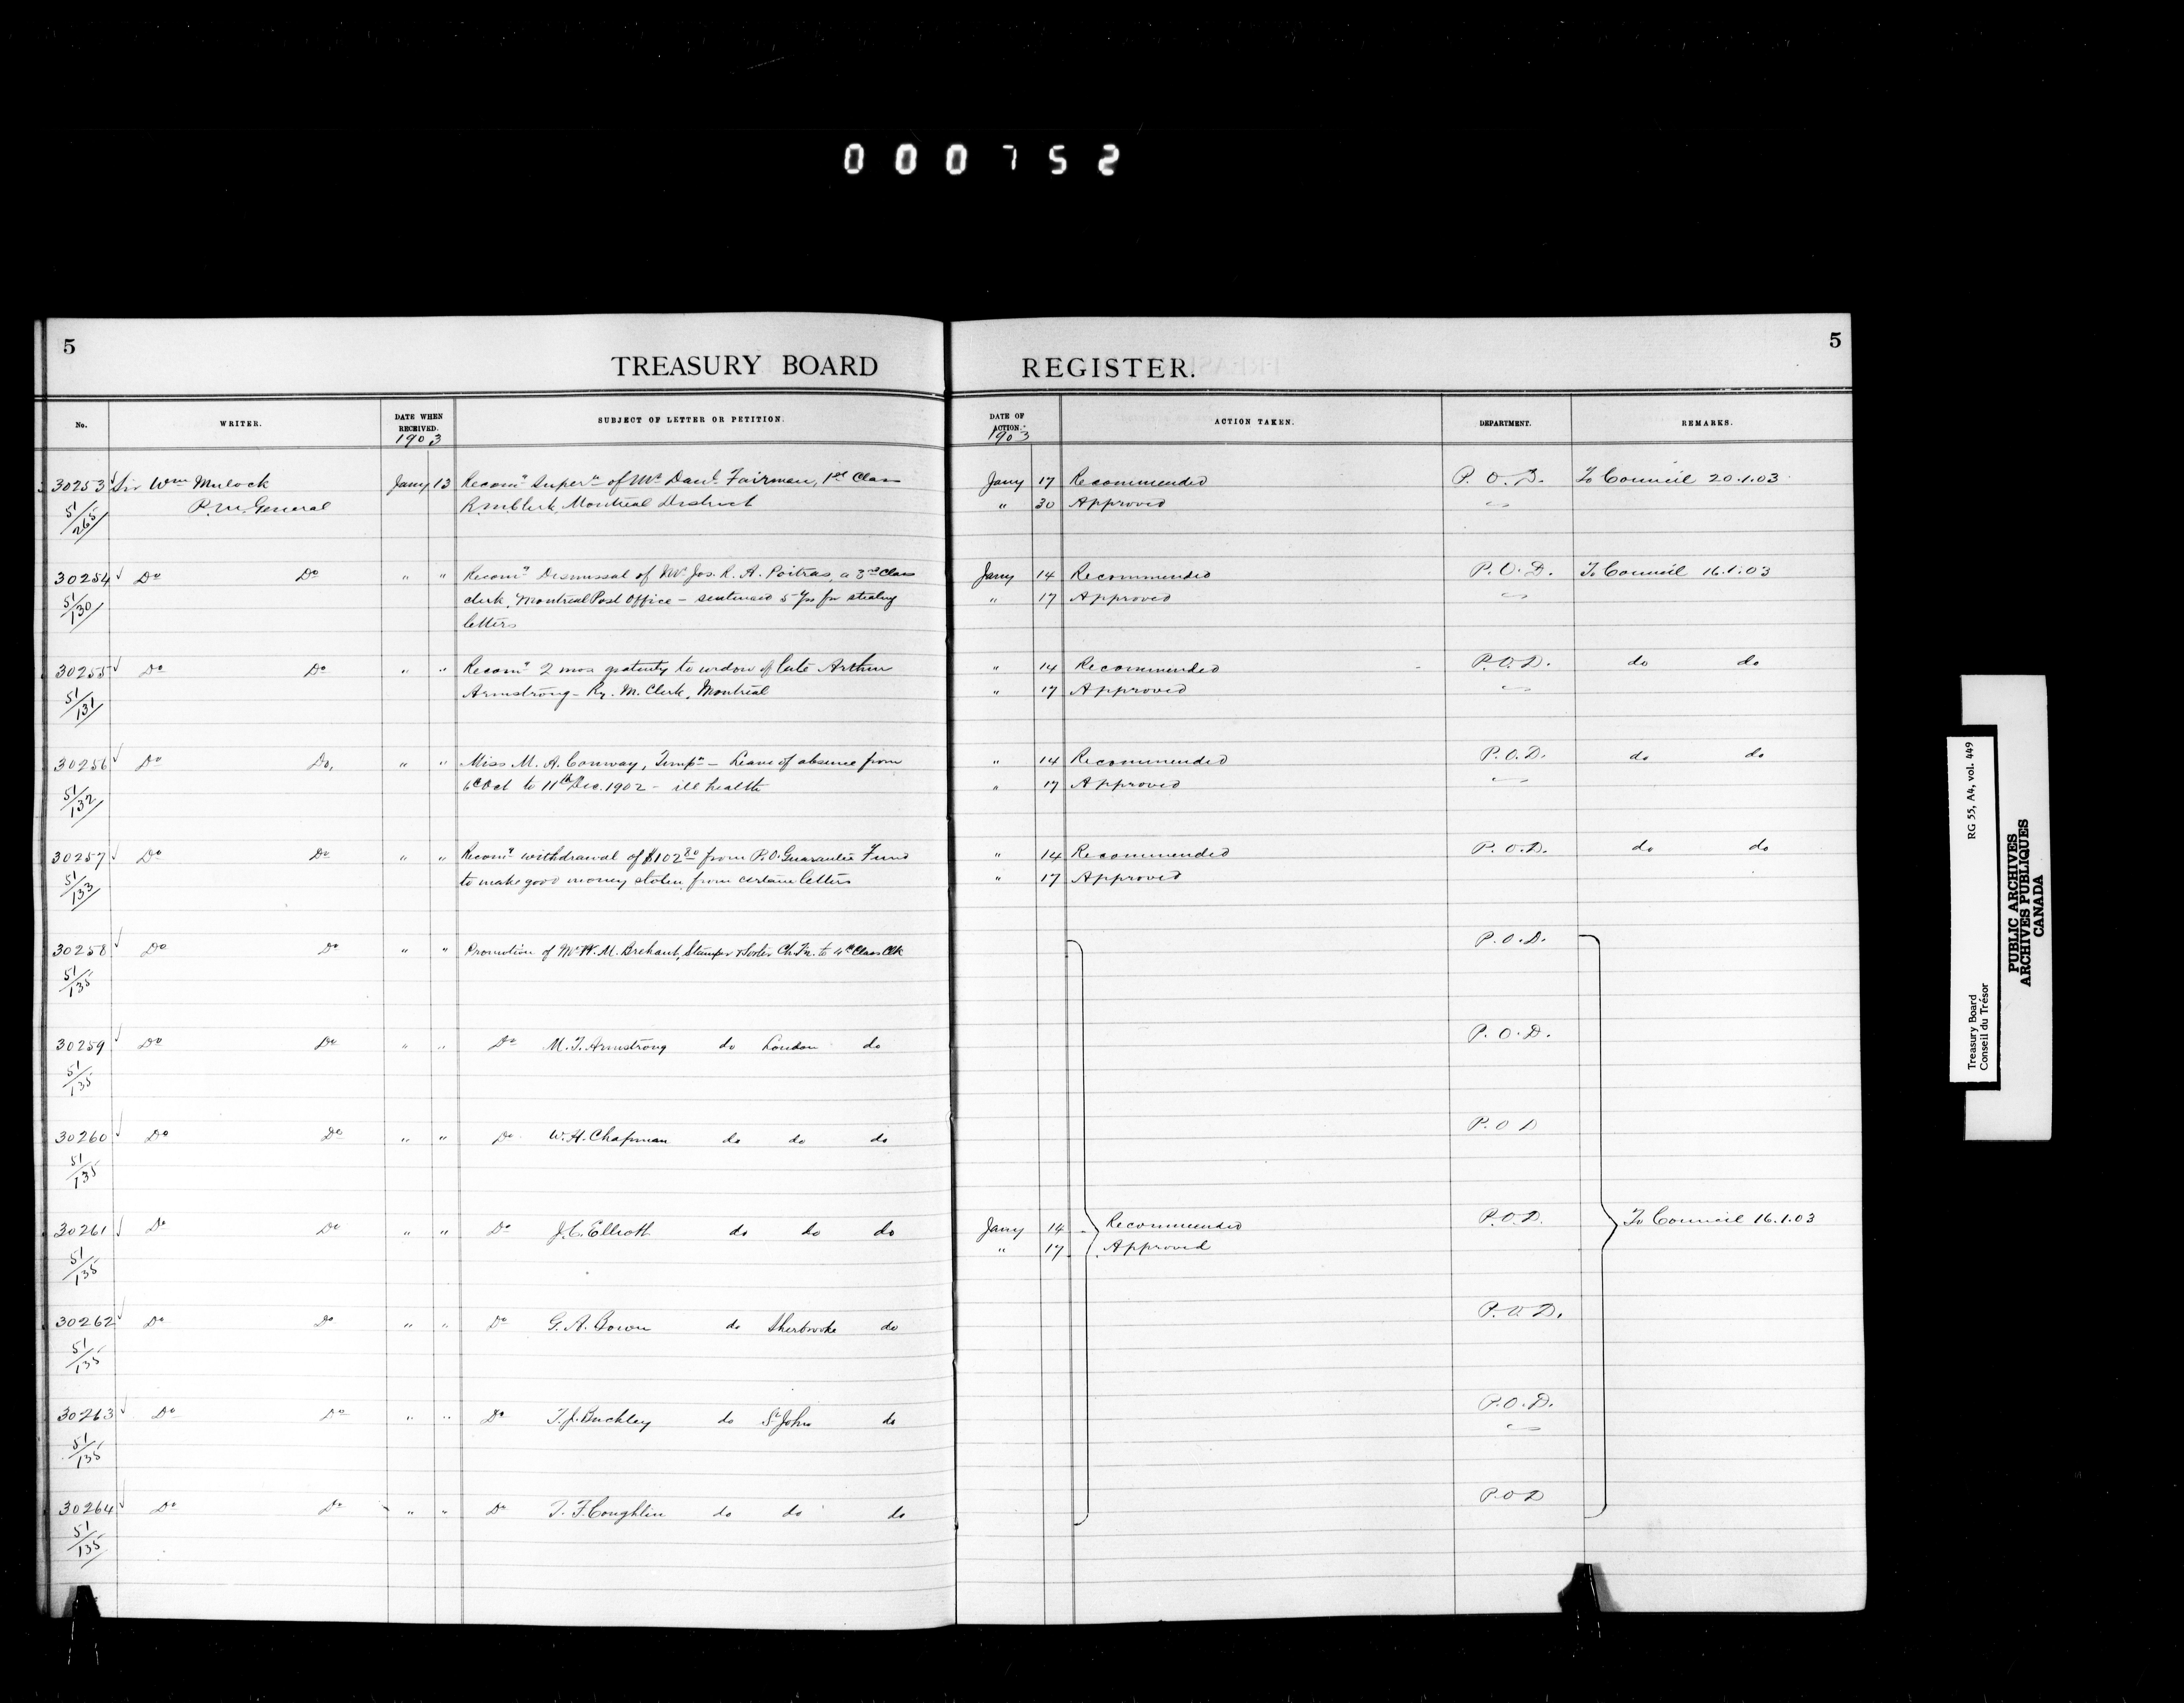 000752
5
5
TREASURY BOARD REGISTER.
No. WRITER. DATE WHEN RECEIVED. 1903 SUBJECT OF LETTER OR PETITION. DATE OF ACTION. 1903 ACTION TAKEN. DEPARTMENT. REMARKS.
30253 Sir Wm Mulock Jany 13 Recomn Supern of Mr Danl Fairman, 1st Class Jany 17 Recommended P. O. D. To Council 20.1.03
51/265 P.M. General R.M. Clerk, Montreal District " 30 Approved "
30254 Do Do " " Recomn Dismissal of Mr Jos. R. A. Poitras, a 3rd Class Jany 14 Recommended P. O. D. To Council 16.1.03
51/130 clerk, Montreal Post Office - sentenced 5 Yrs for stealing " 17 Approved "
letters
30255 Do Do " " Recomn 2 mos gratuity to widow of late Arthur " 14 Recommended P.O.D. do do
51/131 Armstrong - Ry. M. Clerk, Montreal " 17 Approved "
30256 Do Do, " " Miss M. A. Conway, Tempy - Leave of absence from " 14 Recommended P.O.D. do do
51/132 6th Oct to 11th Dec. 1902 - ill health " 17 Approved "
30257 Do Do " " Recomn withdrawal of $102 80 from P.O. Guarantee Fund " 14 Recommended P.O.D. do do
51/133 to make good money stolen from certain letters " 17 Approved
30258 Do Do " " Promotion of Mr W. M. Brehaut, Stamper & Sorter Ch.Tn. to 4th Class Clk P.O.D.
51/135
30259 Do Do " " Do M. T. Armstrong do London do P.O.D.
51/135
30260 Do Do " " Do W. H. Chapman do do do P.O D
51/135
30261 Do Do " " Do J. C. Elliott do do do Jany 14 Recommended P.O.D. To Council 16.1.03
51/135 " 17 Approved
30262 Do Do " " Do G. A. Bowen do Sherbrooke do P.O D.
51/135
30263 Do Do " " Do T. J. Buckley do St John do P.O.D.
51/135 "
30264 Do Do " " Do T. F. Coughlin do do do P.O D
51/135
Treasury Board RG 55, A4, vol. 449
Conseil du Trésor
PUBLIC ARCHIVES
ARCHIVES PUBLIQUES
CANADA